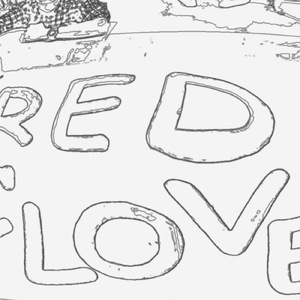 RED
LOVE